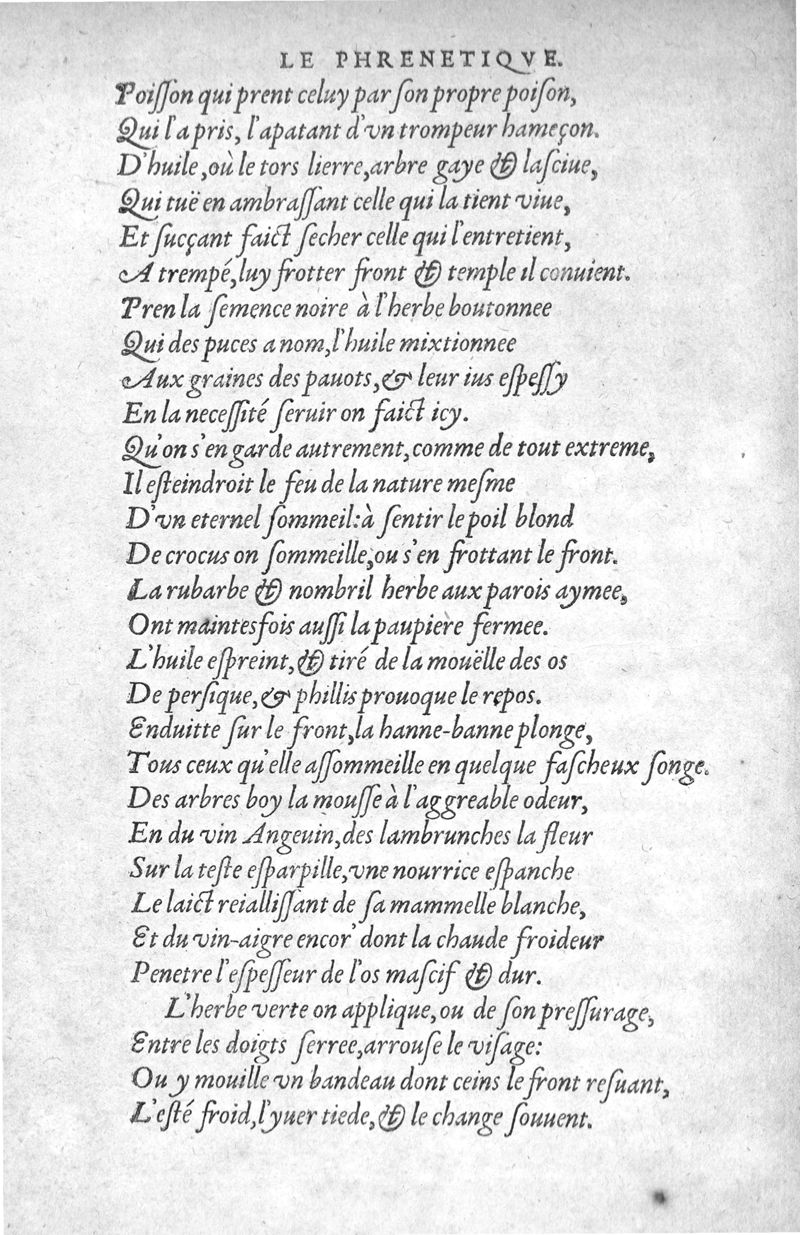 LE PHRENETIQVE.
Poiſſon qui prent celuy par ſon propre poiſon,
Qui l'a pris, l'apatant d'vn trompeur hameçon.
D'huile, où le tors lierre, arbre gaye & laſciue,
Qui tuë en ambraſſant celle qui la tient viue,
Et ſucçant faict ſecher celle qui l'entretient,
A trempé, luy frotter front & temple il conuient.
Pren la ſemence noire à l'herbe boutonnee
Qui des puces a nom, l'huile mixtionnee
Aux graines des pauots, & leur ius eſpeſſy
En la neceſſité ſeruir on faict icy.
Qu'on s'en garde autrement, comme de tout extreme,
Il eſteindroit le feu de la nature meſme
D'vn eternel ſommeil: à ſentir le poil blond
De crocus on ſommeille, ou s'en frottant le front.
La rubarbe & nombril herbe aux parois aymee,
Ont maintesfois auſſi la paupiere fermee.
L'huile eſpreint, & tiré de la mouëlle des os
De perſique, & phillis prouoque le repos.
Enduitte ſur le front, la hanne-banne plonge,
Tous ceux qu'elle aſſommeille en quelque faſcheux ſonge.
Des arbres boy la mouſſe à l'aggreable odeur,
En du vin Angeuin, des lambrunches la fleur
Sur la teſte eſparpille, vne nourrice eſpanche
Le laict reialliſſant de ſa mammelle blanche,
Et du vin-aigre encor' dont la chaude froideur
Penetre l'eſpeſſeur de l'os maſcif & dur.
L'herbe verte on applique, ou de ſon preſſurage,
Entre les doigts ſerree, arrouſe le viſage:
Ou y mouille vn bandeau dont ceins le front reſuant,
L'eſté froid, l'yuer tiede, & le change ſouuent.